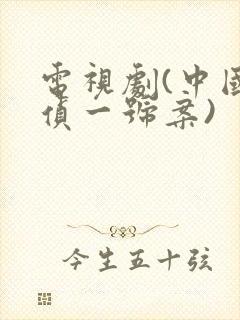 電視劇(中國
偵一號案)
今生五十弦